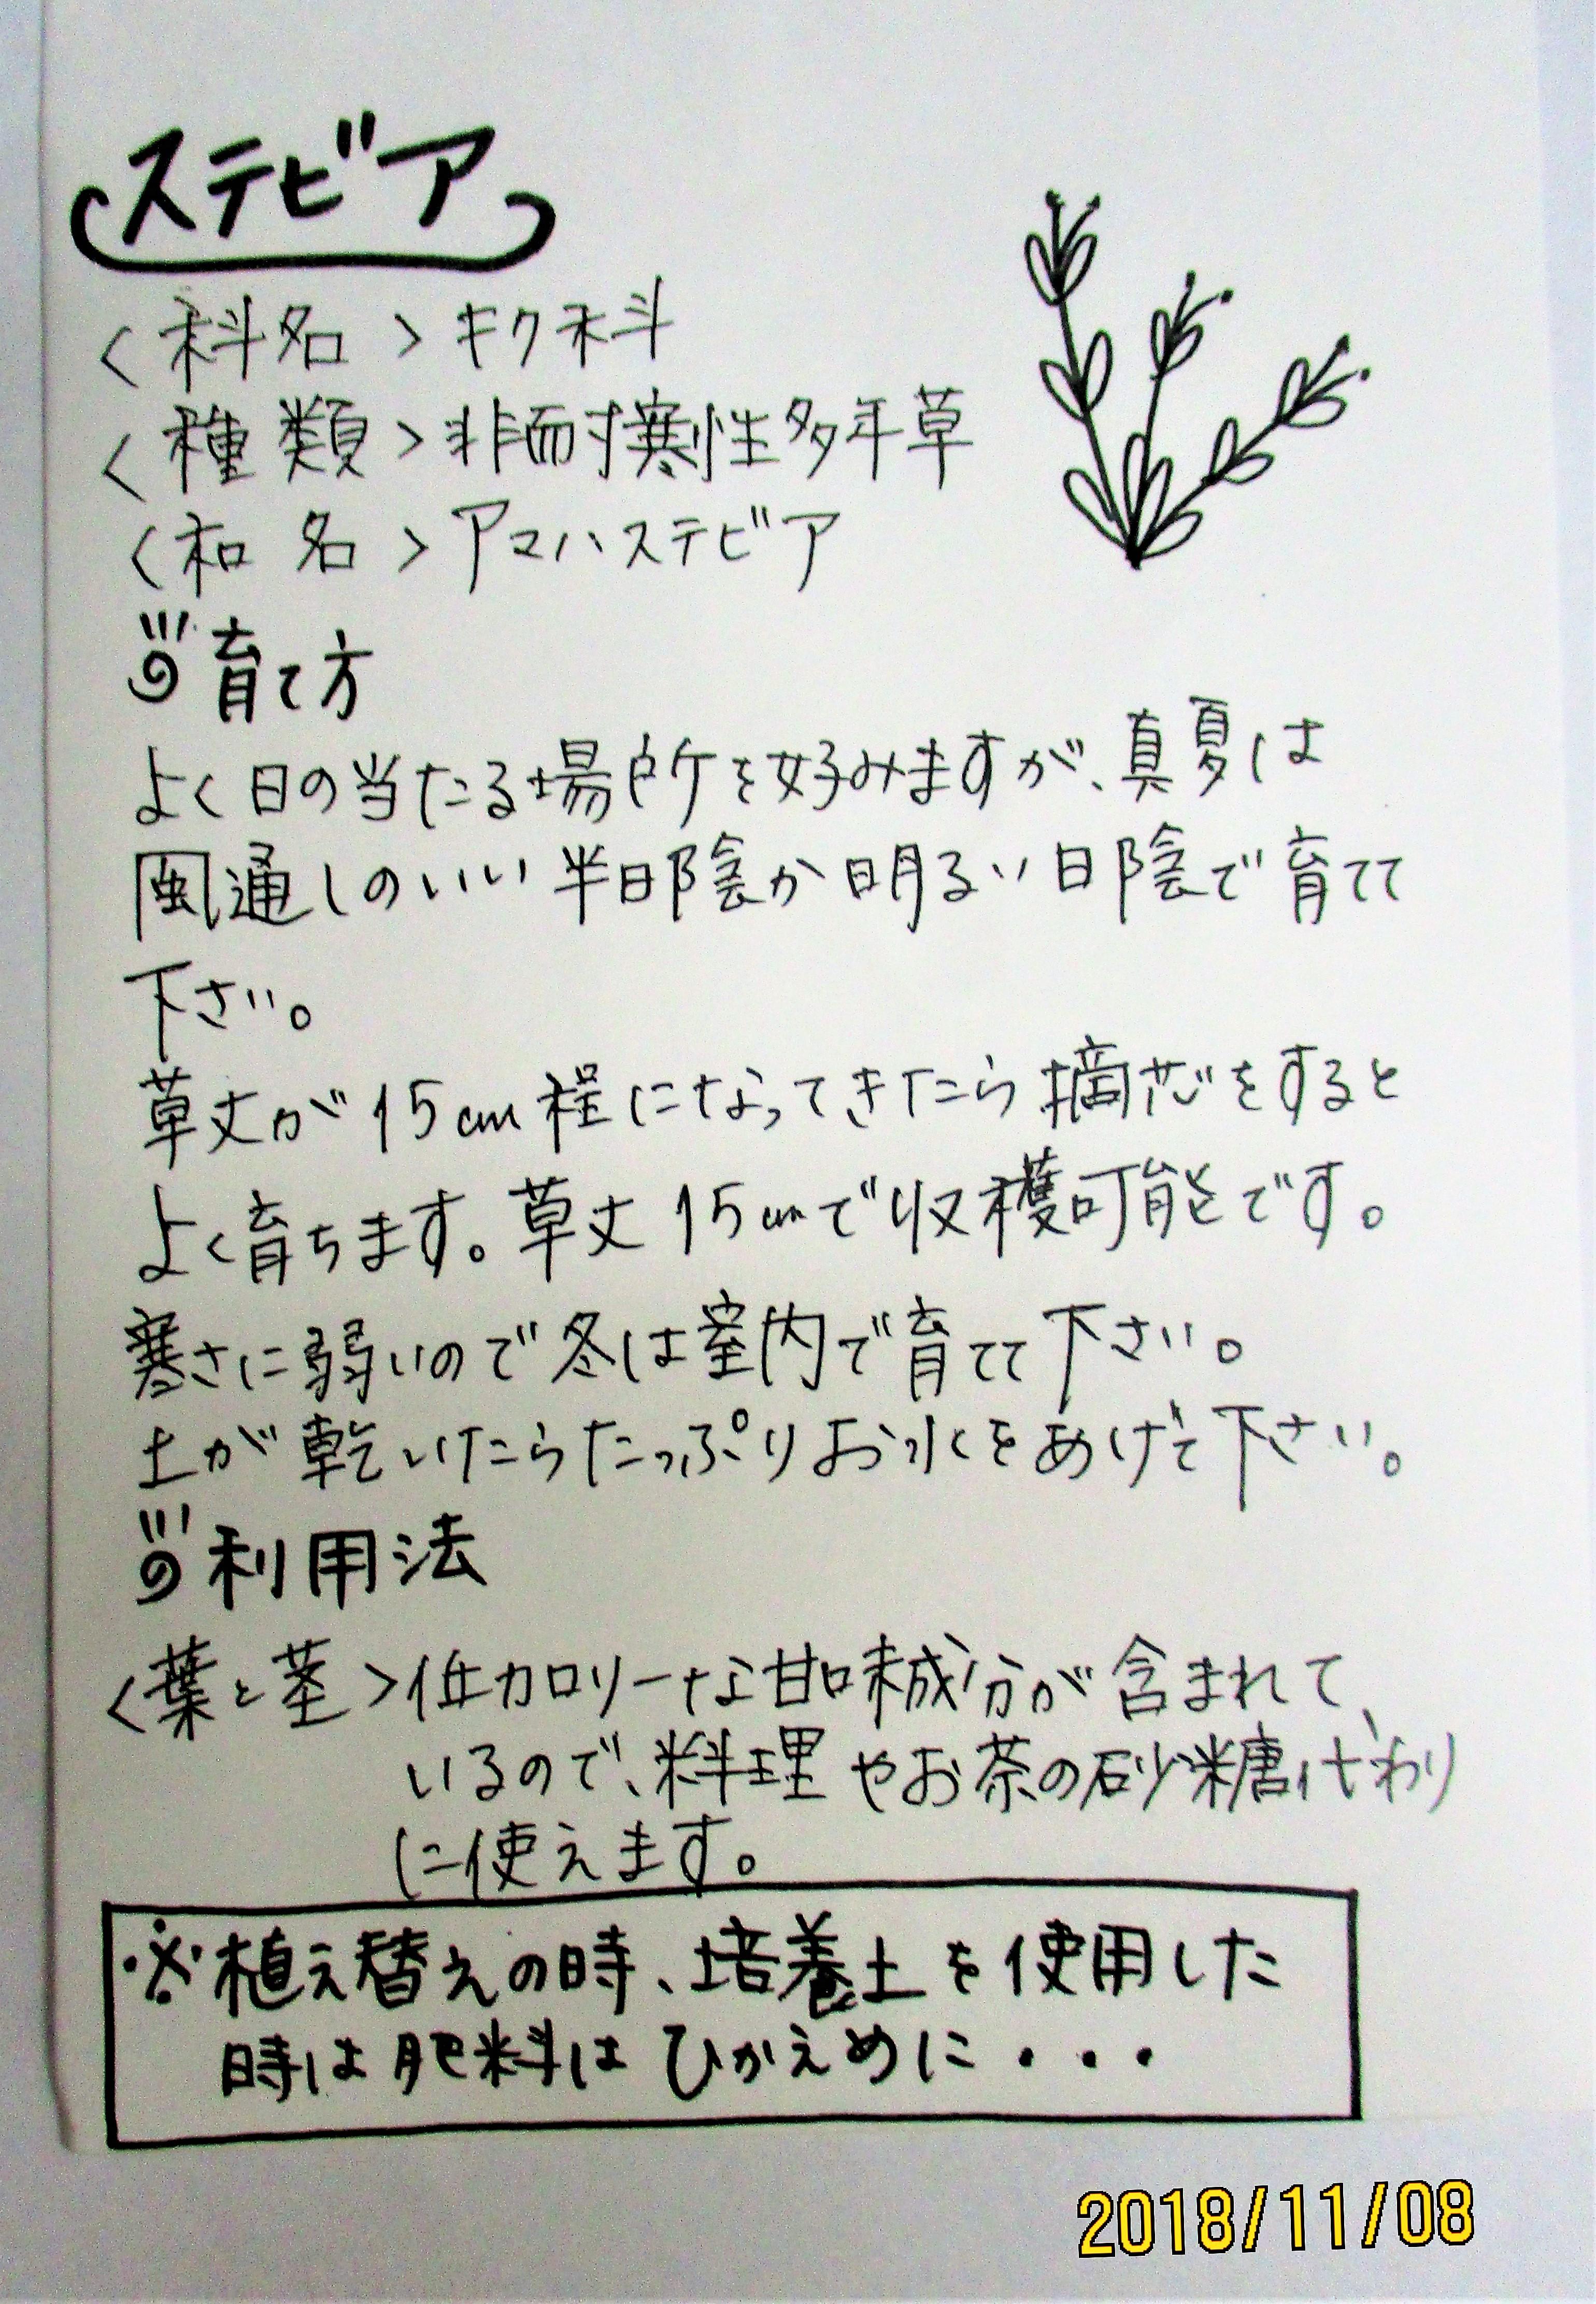 ステビア
<科名>キク科
<種類>非耐寒性多年草
<和名>アマハステビア
育て方
よく日の当たる場所を好みますが、真夏は
風通しのいい半日陰か明るい日陰で育てて
下さい。
草丈が15cm程になってきたら摘芯をすると
よく育ちます。草丈15cmで収穫可能です。
寒さに弱いので冬は室内で育てて下さい。
土が乾いたらたっぷりお水をあげて下さい。
利用法
<葉と茎>低カロリーな甘味成分が含まれて、
いるので、料理やお茶の砂糖代わり
に使えます。
※植え替えの時、培養土を使用した
時は肥料はひかえめに・・・
2018/11/08